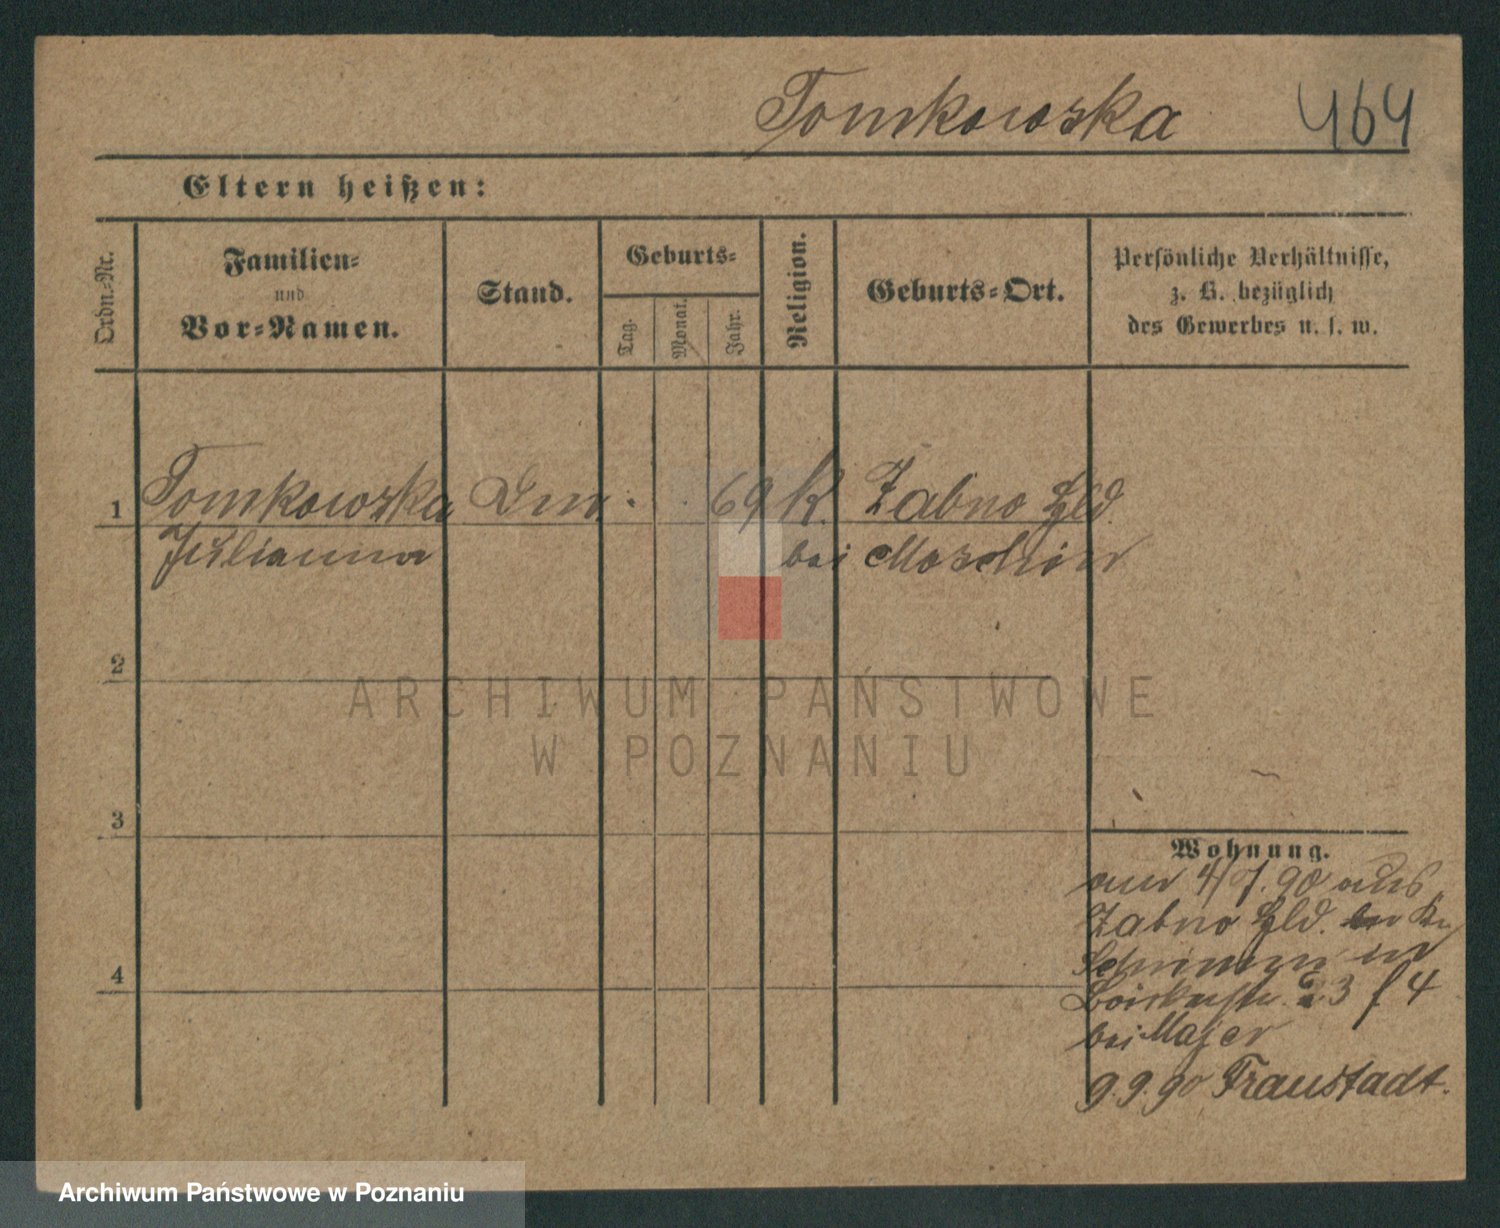 Tomkowska 464
Eltern heißen:
Ordn.-Nr.
Familien-
und
Vor-Namen.
Stand.
Geburts-
Tag.
Monat.
Jahr.
Religion.
Geburts-Ort.
Persönliche Verhältnisse,
z. B. bezüglich
des Gewerbes u. s. w.
1 Tomkowska 69 K. Zabno Hld.
Julianna bei Moschin
2
3
4
ARCHIWUM PAŃSTWOWE
W POZNANIU
Wohnung.
am 4/7.90 aus
Zabno Hld.
Schrimm in
23 f 4
bei Majer
9.9.90 Fraustadt.
Archiwum Państwowe w Poznaniu